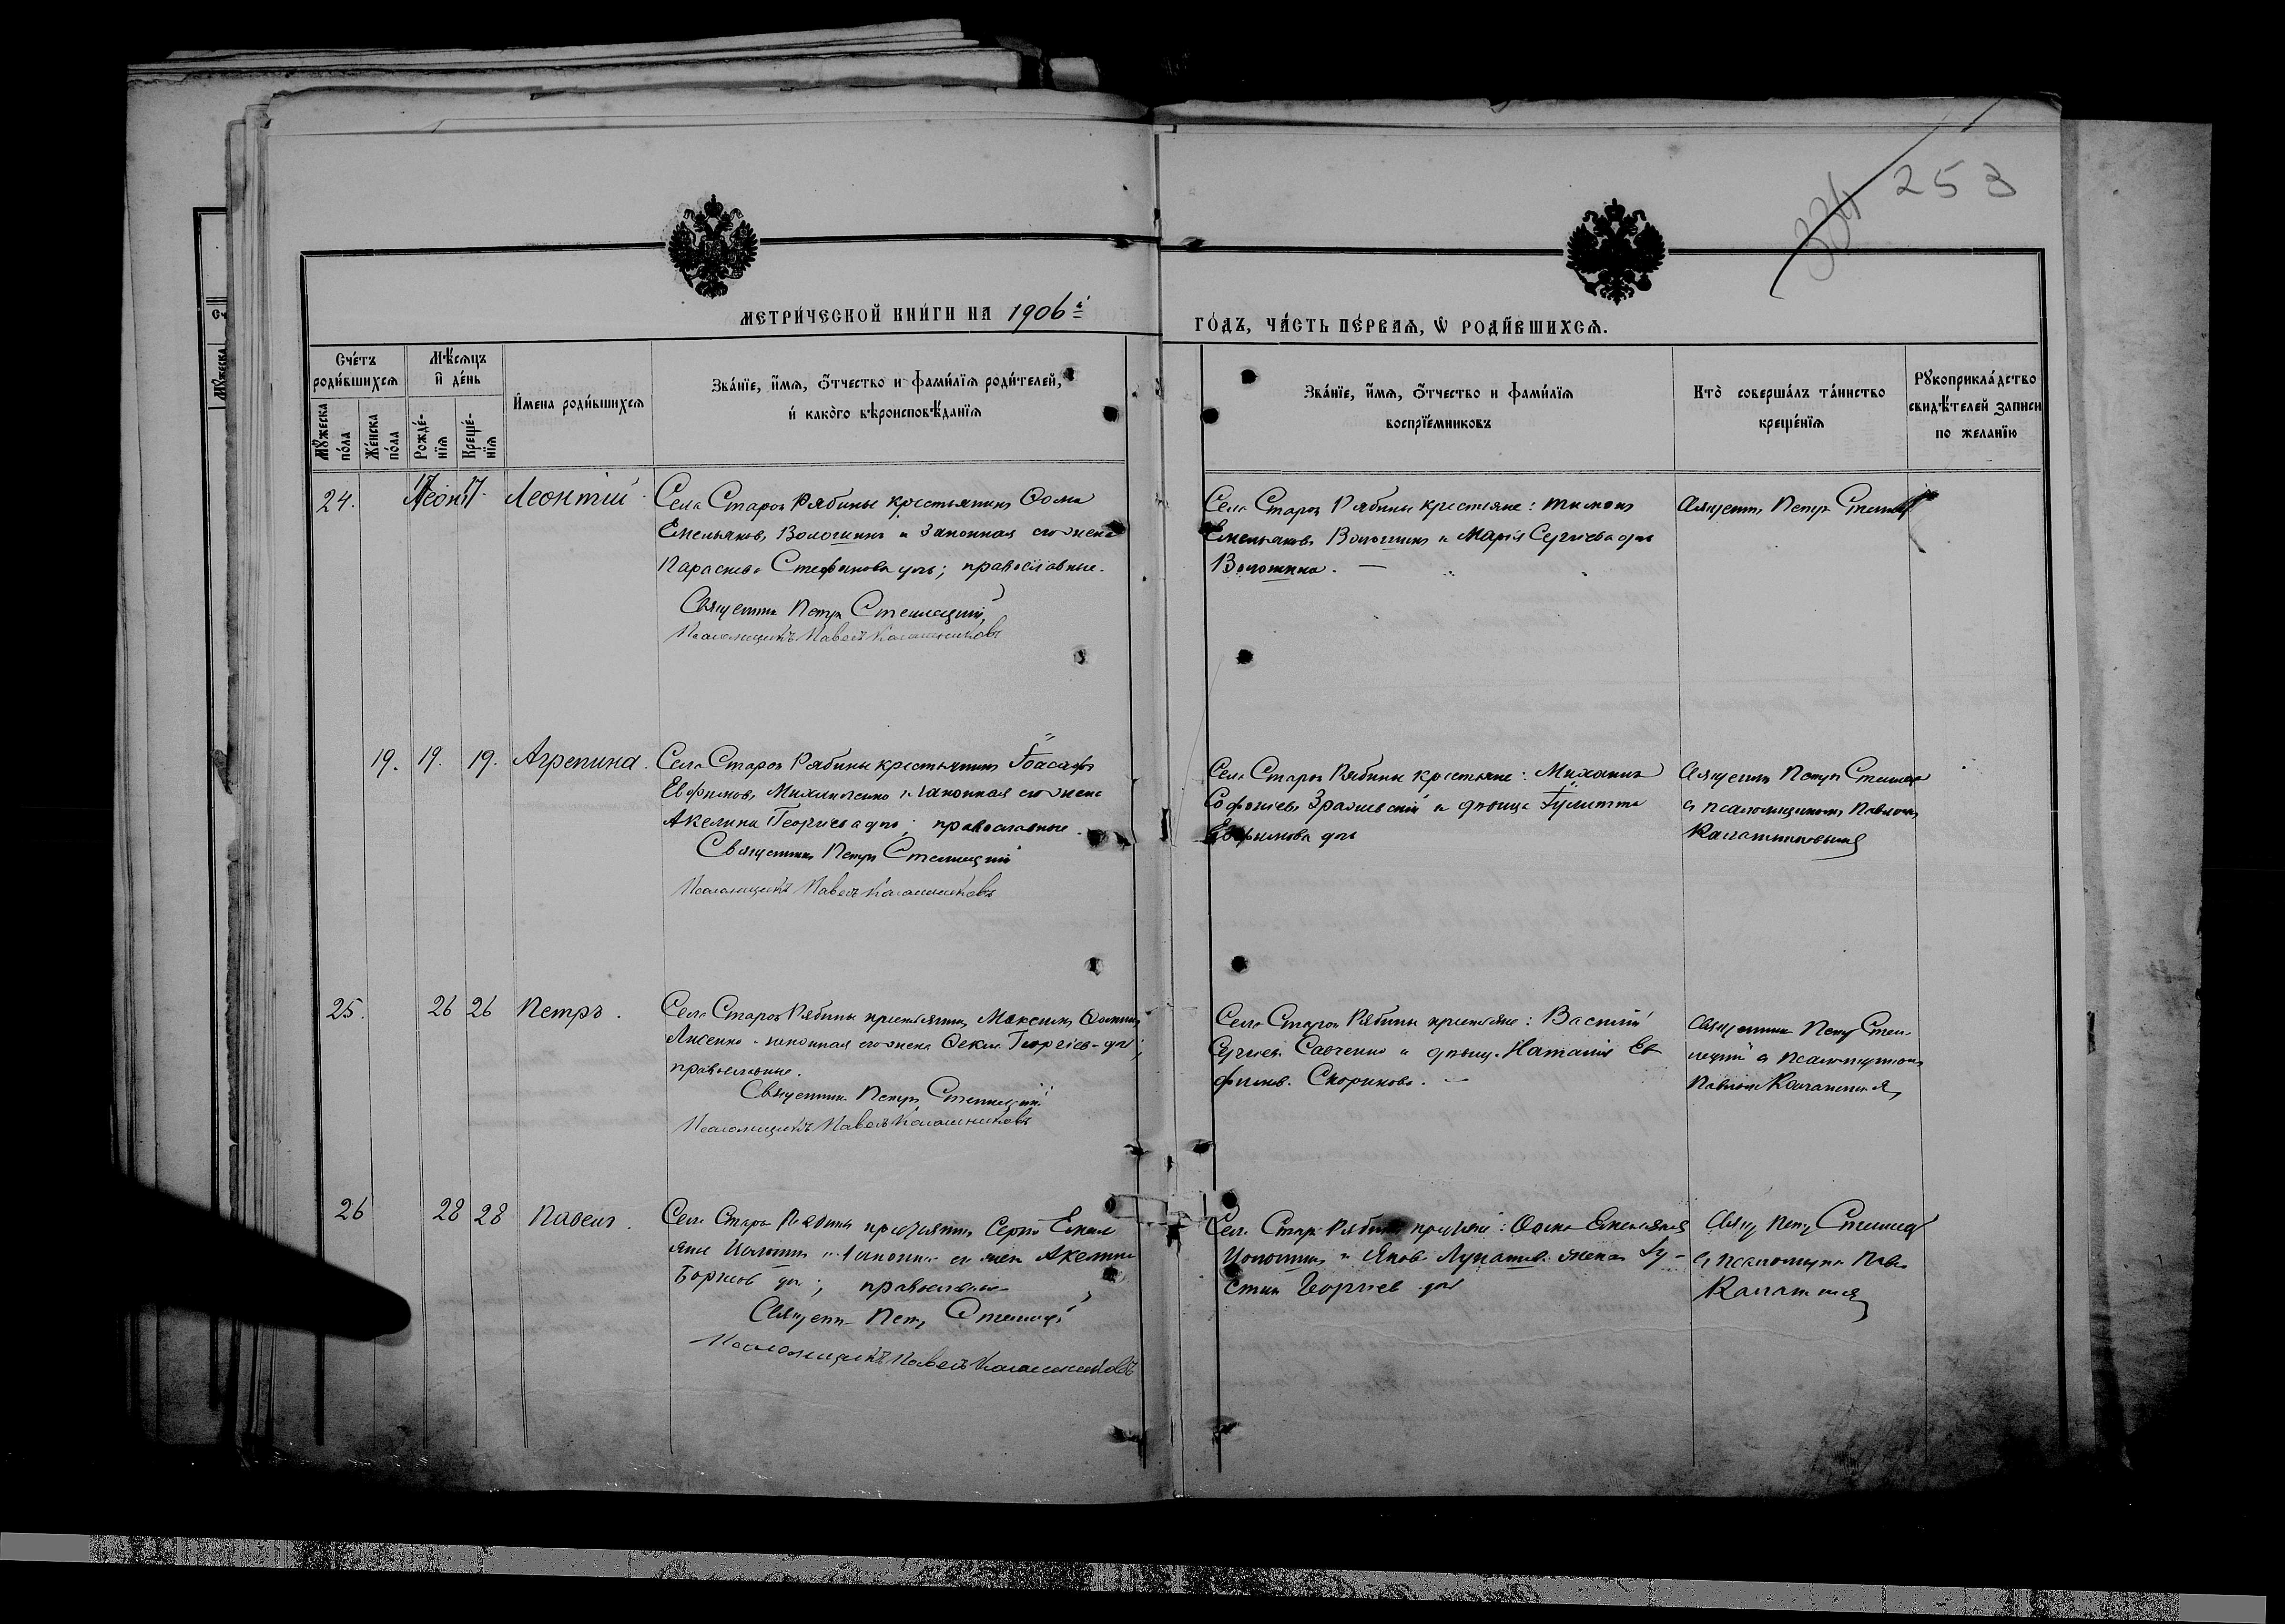 253
334
МЕТРИ́ЧЕСКОЙ КНИ́ГИ НА 1906й
ГО́ДЪ, ЧА́СТЬ ПЕ́РВАѦ, Ѡ҆ РОДИ́ВШИХСѦ.
Сче́тъ роди́вшихсѧ
Мѣ́сѧцъ и҆ де́нь
И҆мена роди́вшихсѧ
Зва́нїе, и҆́мѧ, ѻ҆́тчество и фами́лїѧ роди́телей,
и҆ како́гѡ вѣроисповѣ́данїѧ
Мꙋ́жеска по́ла
Же́нска по́ла
Рожде́нїѧ
Креще́нїѧ
Зва́нїе, и҆́мѧ, ѻ҆́тчество и фами́лїѧ
воспрїе́мниковъ
Кто̀ соверша́лъ та́инство
креще́нїѧ
Рꙋкоприкла́дство
свидѣ́телей записи
по жела́нїю
24. 17. Леонтій
Села Старой Рябины крестьянинъ Ѳома
Емельяновъ Волошинъ и законная его жена
Параскева Стефанова дочь; православные.
Священникъ Петръ
Псаломщикъ Павелъ Калашниковъ
Села Старой Рябины крестьяне: Тимонъ
Емельяновъ Волошинъ и Марія Сергіева дочь
Волошина.
Священникъ Петръ
19. 19. 19. Агрепина.
Села Старой Рябины крестьянинъ Іоасафъ
Евфимовъ Михайленко и законная его жена
Акелина Георгіева дочь; православные.
Священникъ Петръ
Псаломщикъ Павелъ Калашниковъ
Села Старой Рябины крестьяне: Михаилъ
и дѣвица Іулитта
Евфимова дочь
Священникъ Петръ
съ псаломщикомъ Павломъ
Калашниковымъ
25. 26 26 Петръ.
Села Старой Рябины крестьянинъ Максимъ Ѳоминъ
Лисенко и законная его жена Ѳекла Георгіева дочь;
православные.
Священникъ Петръ
Псаломщикъ Павелъ Калашниковъ
Села Старой Рябины крестьяне: Василій
Сергіевъ Савченко и дѣвица Наталія Ев
фимова Скорикова.
Священникъ Петръ
съ псаломщикомъ
Павломъ Калашниковымъ
26 28 28 Павелъ.
Села Старой Рябины крестьянинъ Сергій Емель
яновъ Волошинъ и законная его жена Акелина
дочь; православные
Священникъ Петръ
Псаломщикъ Павелъ Калашниковъ
Села Старой Рябины крестьяне: Ѳома Емельяновъ
Волошинъ и Яковъ жена Іу-
Георгіева дочь
Священ Петръ
съ псаломщикомъ Павл
Калашников